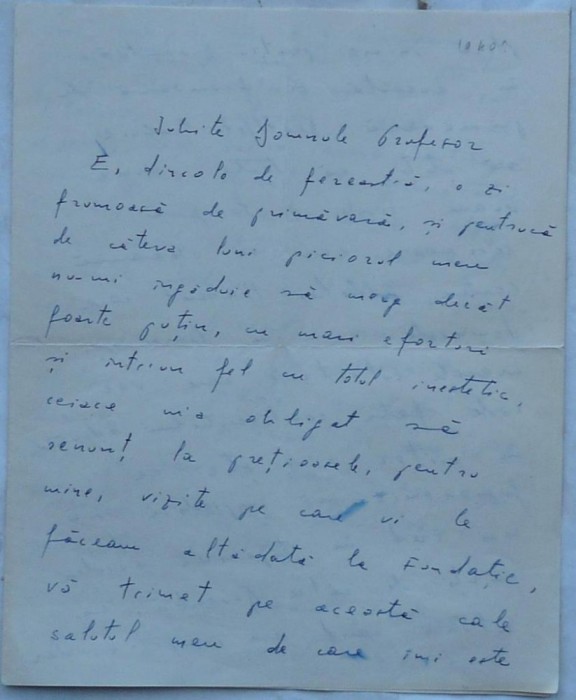 Iubite Domnule Profesor
E, dincolo de fereastră, o zi
frumoasă de primăvară, și pentrucă
de câteva luni piciorul meu
nu-mi îngăduie să merg decât
foarte puțin, cu mari eforturi
și într'un fel cu totul inestetic,
ceiace m'a obligat să
renunț la prețioasele, pentru
mine, vizite pe care vi le
făceam altădată la Fundație,
vă trimet pe această cale
salutul meu de care îmi este